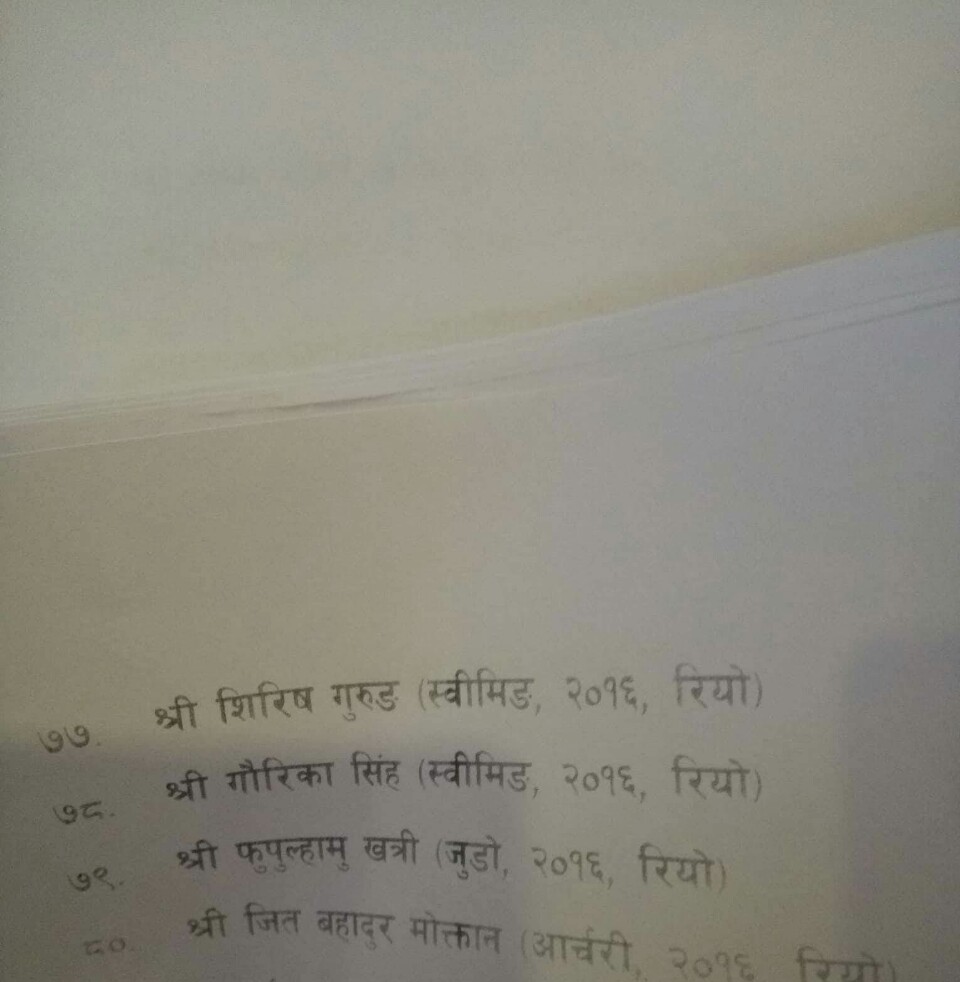 ७७. श्री शिरिष गुरुङ (स्वीमिङ, २०१६, रियो)
७८. श्री गौरिका सिंह (स्वीमिङ, २०१६, रियो)
७९. श्री फुपुल्हामु खत्री (जुडो, २०१६, रियो)
८०. श्री जित बहादुर मोक्तान (आर्चरी, २०१६ रियो)